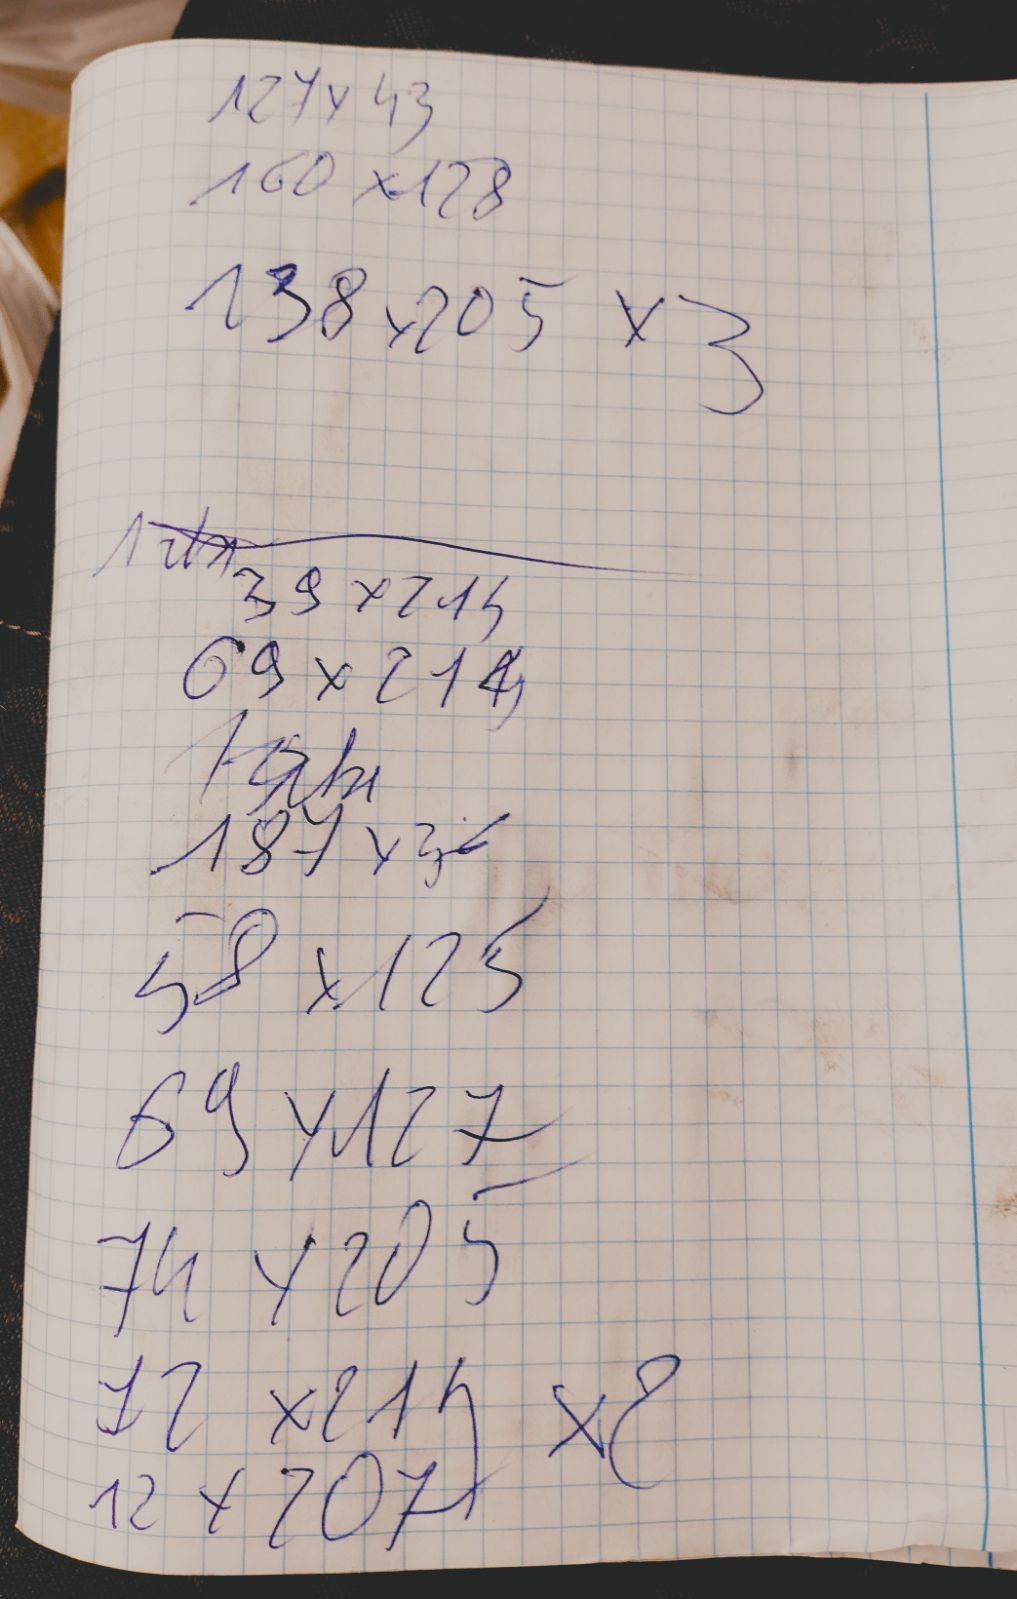 127 x 43
160 x 128
138 x 205 x 3
39 x 214
69 x 214
187 x 3
58 x 125
69 x 127
74 x 205
12 x 214 x 2
12 x 207